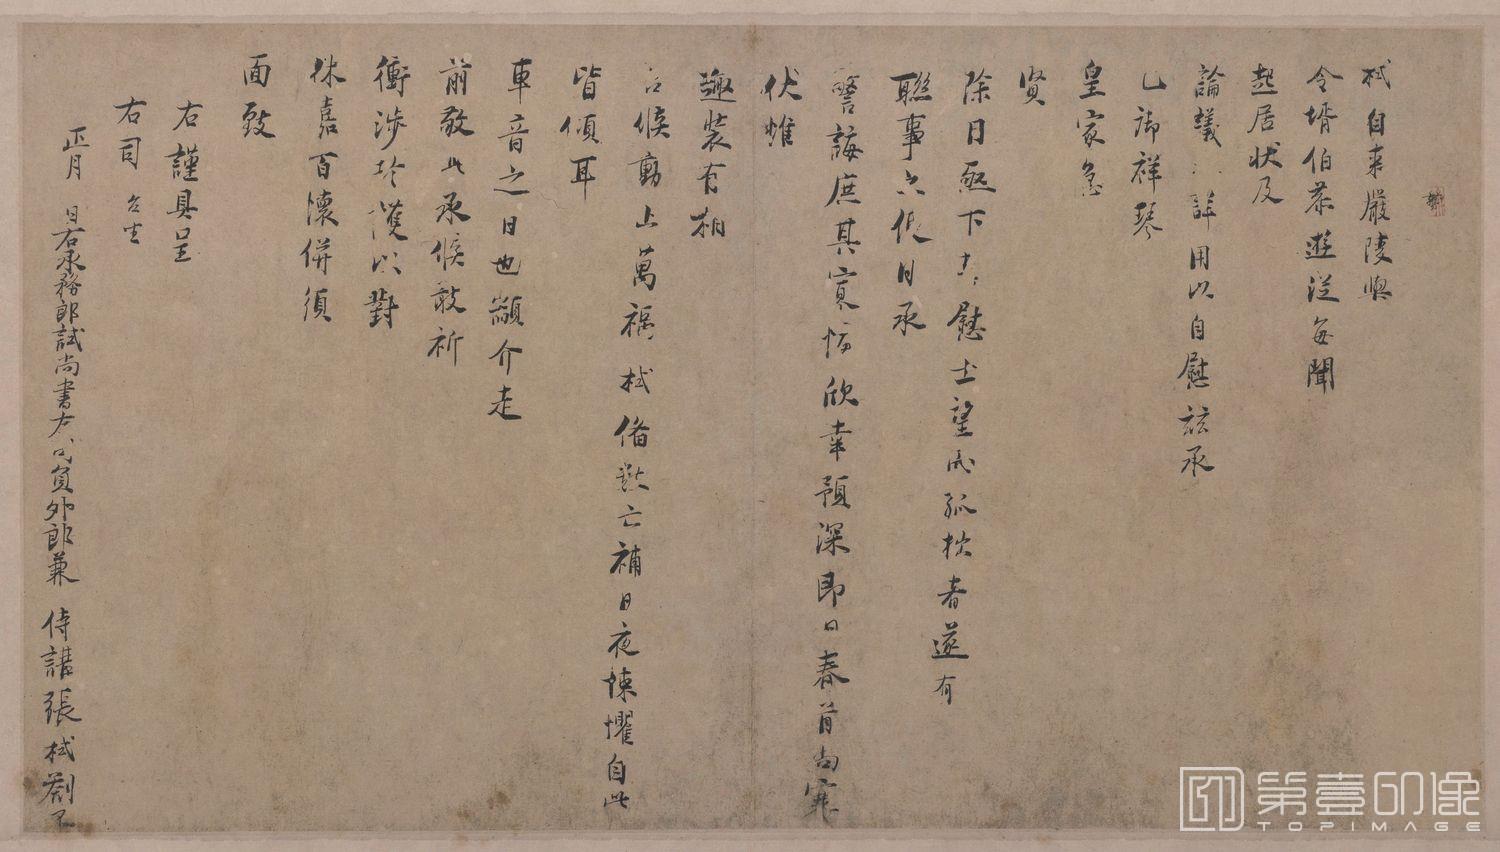 栻自来嚴陵與
令壻伯恭遊從每聞
起居狀及
論議之詳用以自慰茲承
已御祥琴
皇家急
賢
除目亟下大慰士望而孤拙者遂有
聯事之便日承
警誨庶其寡悔欣幸預深即日春首尚寒
伏惟
趣裝有相
台候動止萬福栻備數亡補日夜悚懼自此
皆傾耳
車音之日也顓介走
前敬此承候敢祈
衝涉珍護以對
休嘉百懷併須
面致
右謹具呈
右司 台坐
正月 日右承務郎試尚書左司員外郎兼 侍講張栻劄子
第壹印像
TOPIMAGE